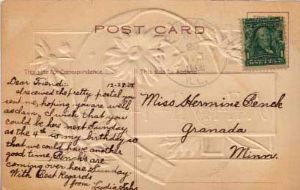 POST CARD
This side for Correspondence.
This Side for Address
Dear Friend:
I received the pretty postal
sent me, hoping you are well
as I am. I wish that you
could be here next Sunday
as the 4th is my birthday so
that we could have another
good time.
are
coming over here Sunday.
With Best Regards
from Lydia
Miss Hermine
Granada
Minn.